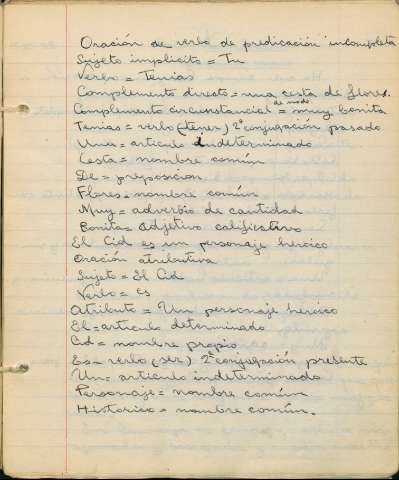 Oración de verbo de predicación incompleta
Sujeto implicito = Tu
Verbo = Tenias
Complemento directo = una cesta de flores.
Complemento circunstancial de modo = muy bonita
Tenias = verbo (tener) 2ª conjugación pasado
Una = articulo indeterminado
Cesta = nombre común
De = preposicion
Flores = nombre común
Muy = adverbio de cantidad
Bonita = adjetivo calificativo
El Cid es un personaje heroico
Oración atributiva
Sujeto = El Cid
Verbo = es
Atributo = Un personaje heroico
El = articulo determinado
Cid = nombre propio
Es = verbo (ser) 2ª conjugación presente
Un = articulo indeterminado
Personaje = nombre común
Historico = nombre común.